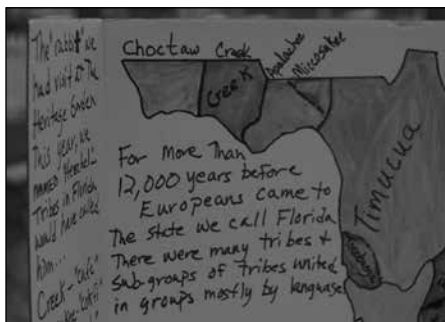 The "rabbit" we
had visit at The
Heritage Garden
This year, we
named "Herschel"
Tribes in Florida
would have called
him...
Creek - "Cufe"
Choctaw
Creek
Apalachee
Miccosukee
Creek
For More Than
12,000 years before
Europeans came to
The state we call Florida
There were many tribes +
Sub-groups of tribes united
in groups mostly by language
Timucua